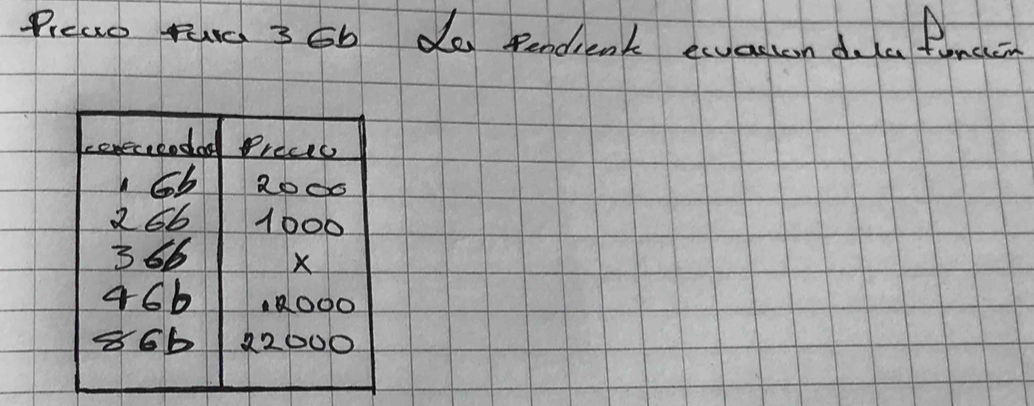 Precio para 3 Gb La Pendiente ecuacion de la función
Precio
1 Gb 2000
2 Gb 1000
3 Gb x
4 Gb 12000
8 Gb 22000